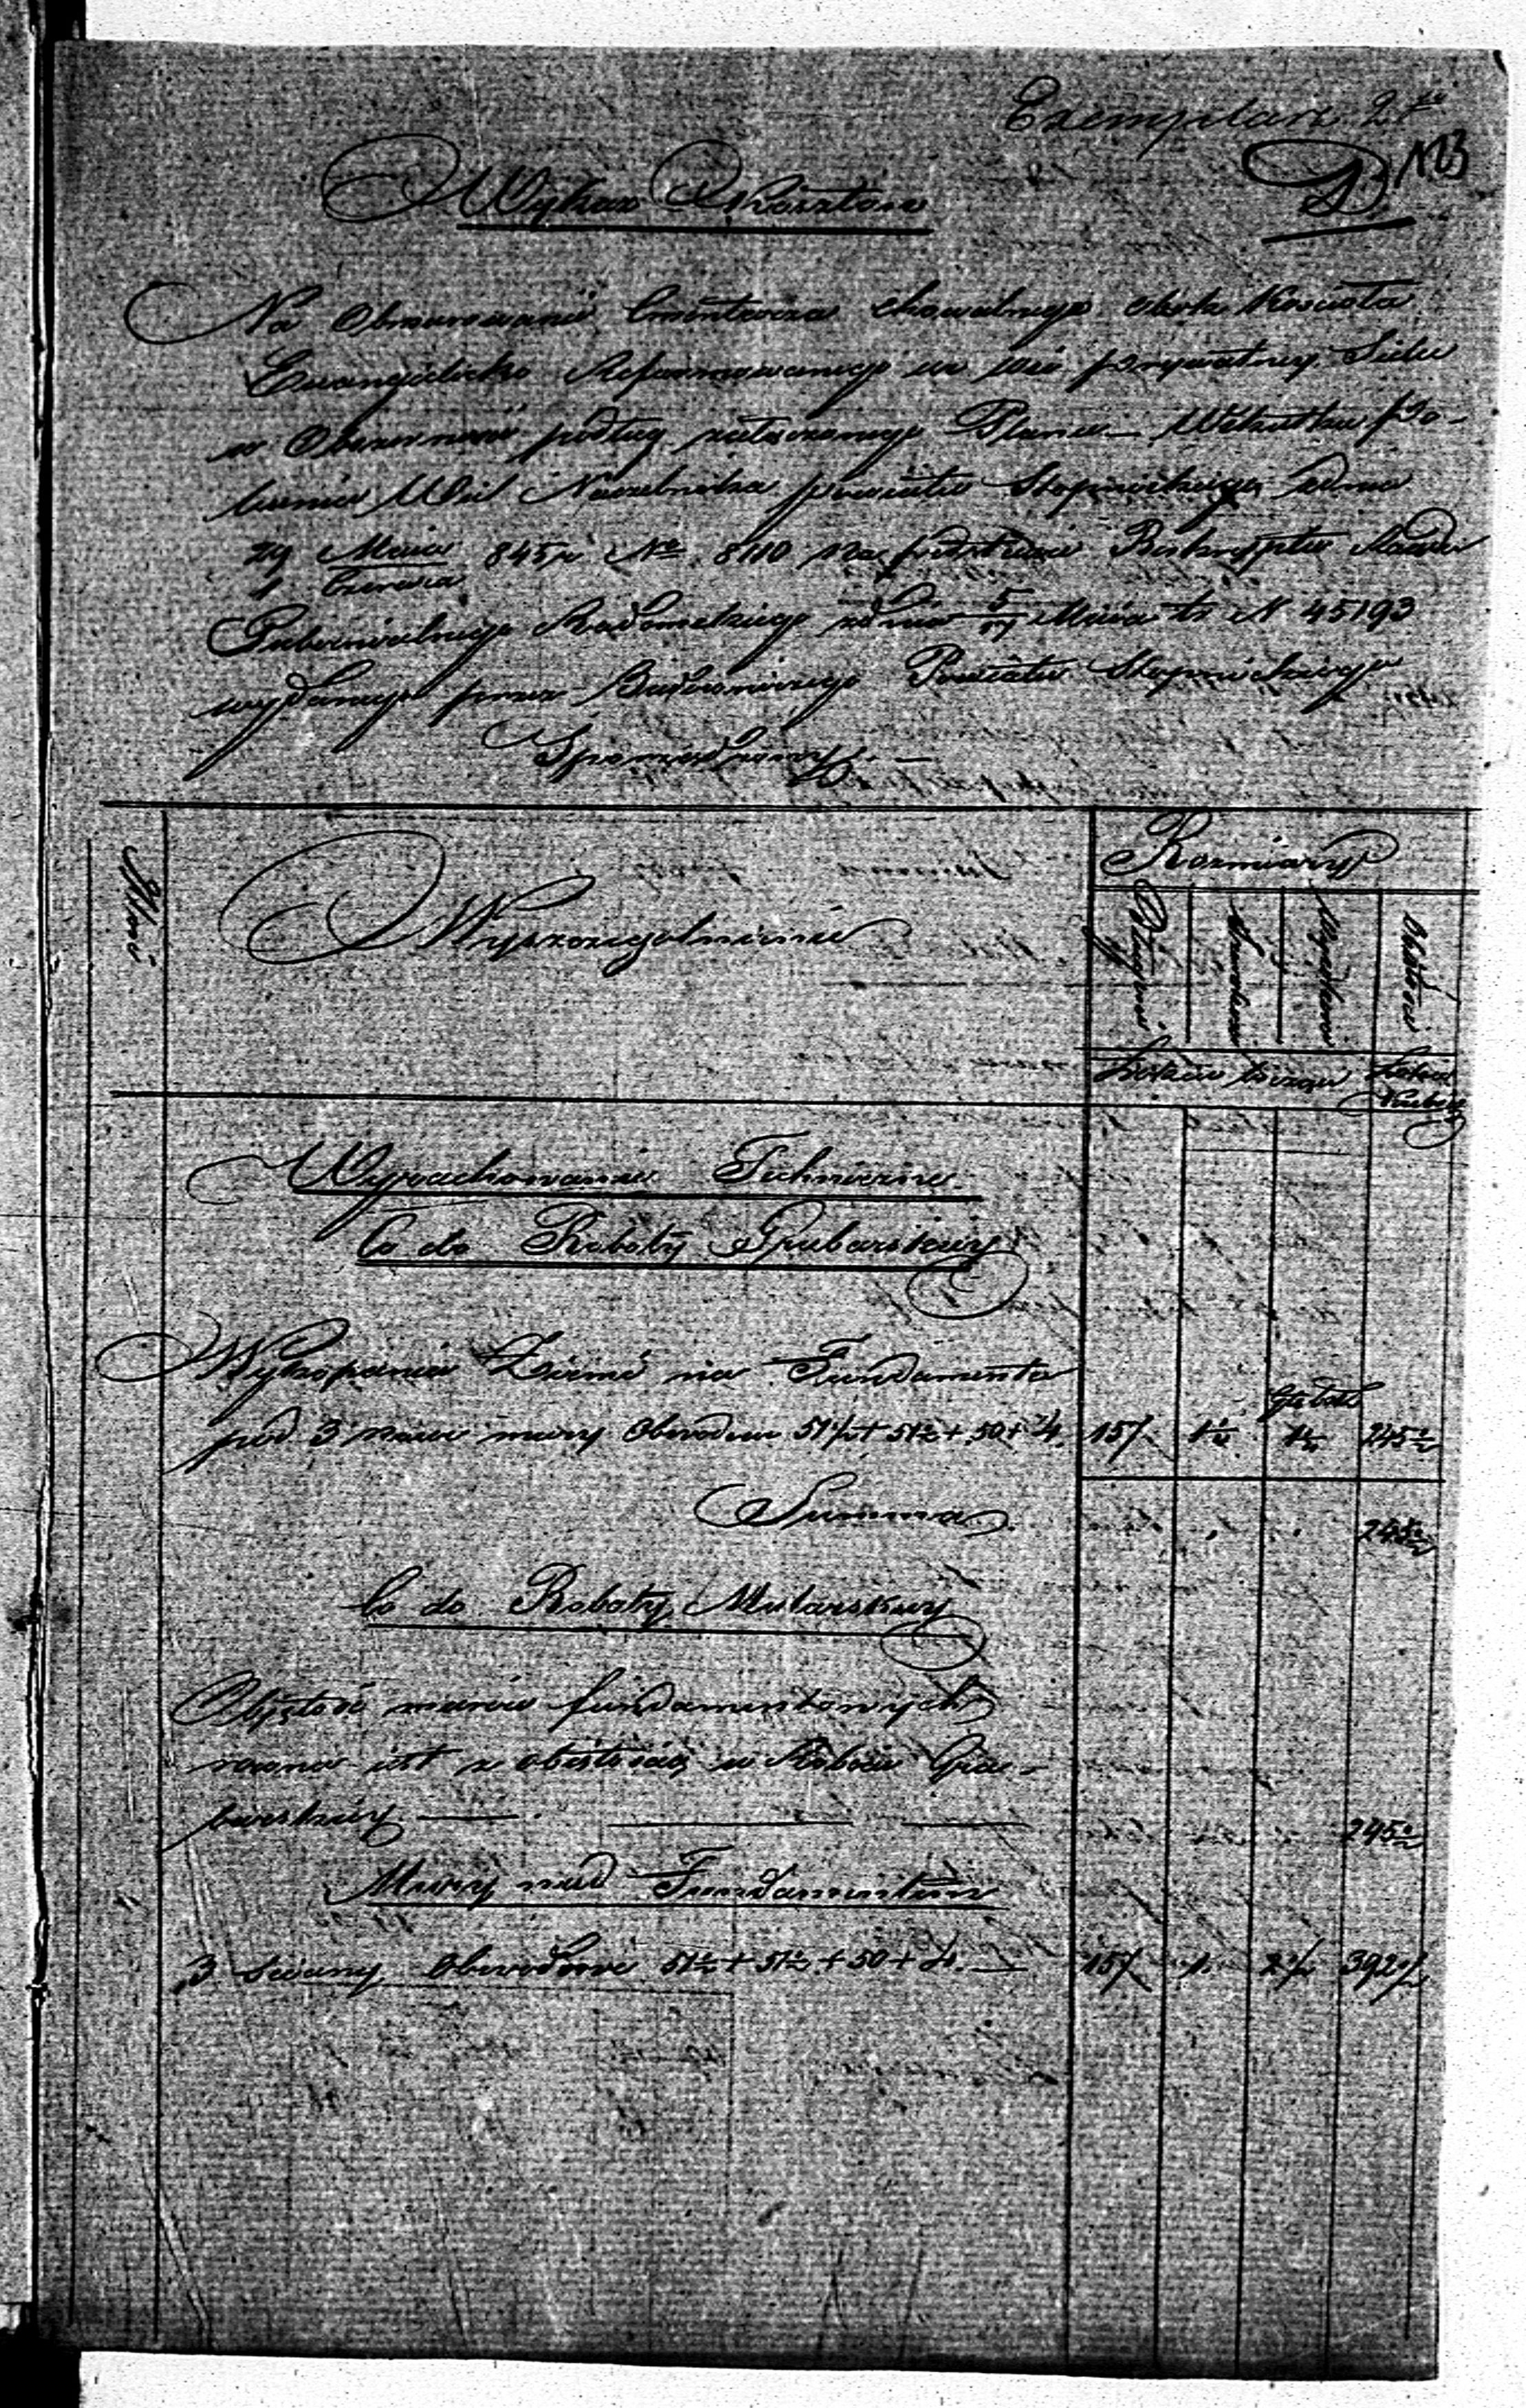 Exemplarz 2gi
D. 123
Wykaz Kosztów
Na Obmurowanie Cmentarza chowalnego obok Kościoła
Ewangelicko Reformowanego we wsi prywatney Sielcu
w Obszerności podług załączonego Planu Wskutku Po-
lecenia WW Naczelnika powiatu Stopnickiego z dnia
29 Maia 845 r. No 8110 na
1 Czerwca
Gubernialnego Radomskiego z dnia 5/17 Maia tr N 45193
wydanego przez Budowniczego Powiatu Stopnickiego
Sporządzony.
Ilość
Wyszczególnienie
Rozmiary
Długość
Szerokość
Wysokość
Obiętość
Łokcie bieżące
Łokcie Kubicz
Wyrachowanie Techniczne.
Co do Roboty Grubarskiey
Wykopania Ziemi na Fundamenta
głębok
pod 3 mury Obwodowe 51½ + 51½ + 50 + 4. 157. 1¼ 1¼ 245½
Summa. 245½
Co do Roboty Mularskiey
Obiętość murów fundamentowych
równa iest z obiętością w Robocie Gra-
barskiey 245½
Mury nad Fundamentem
3 Sciany Obwodowe 51½ + 51½ + 50 + 4. 157. 1. 2½ 392½